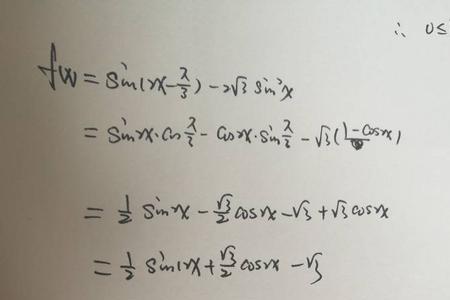 ∴ 0≤
f(x) = sin(2x - π/3) - 2√3 sin²x
= sin2x·cos π/3 - cos2x·sin π/3 - √3(1-cos2x)
= 1/2 sin2x - √3/2 cos2x - √3 + √3 cos2x
= 1/2 sin2x + √3/2 cos2x - √3